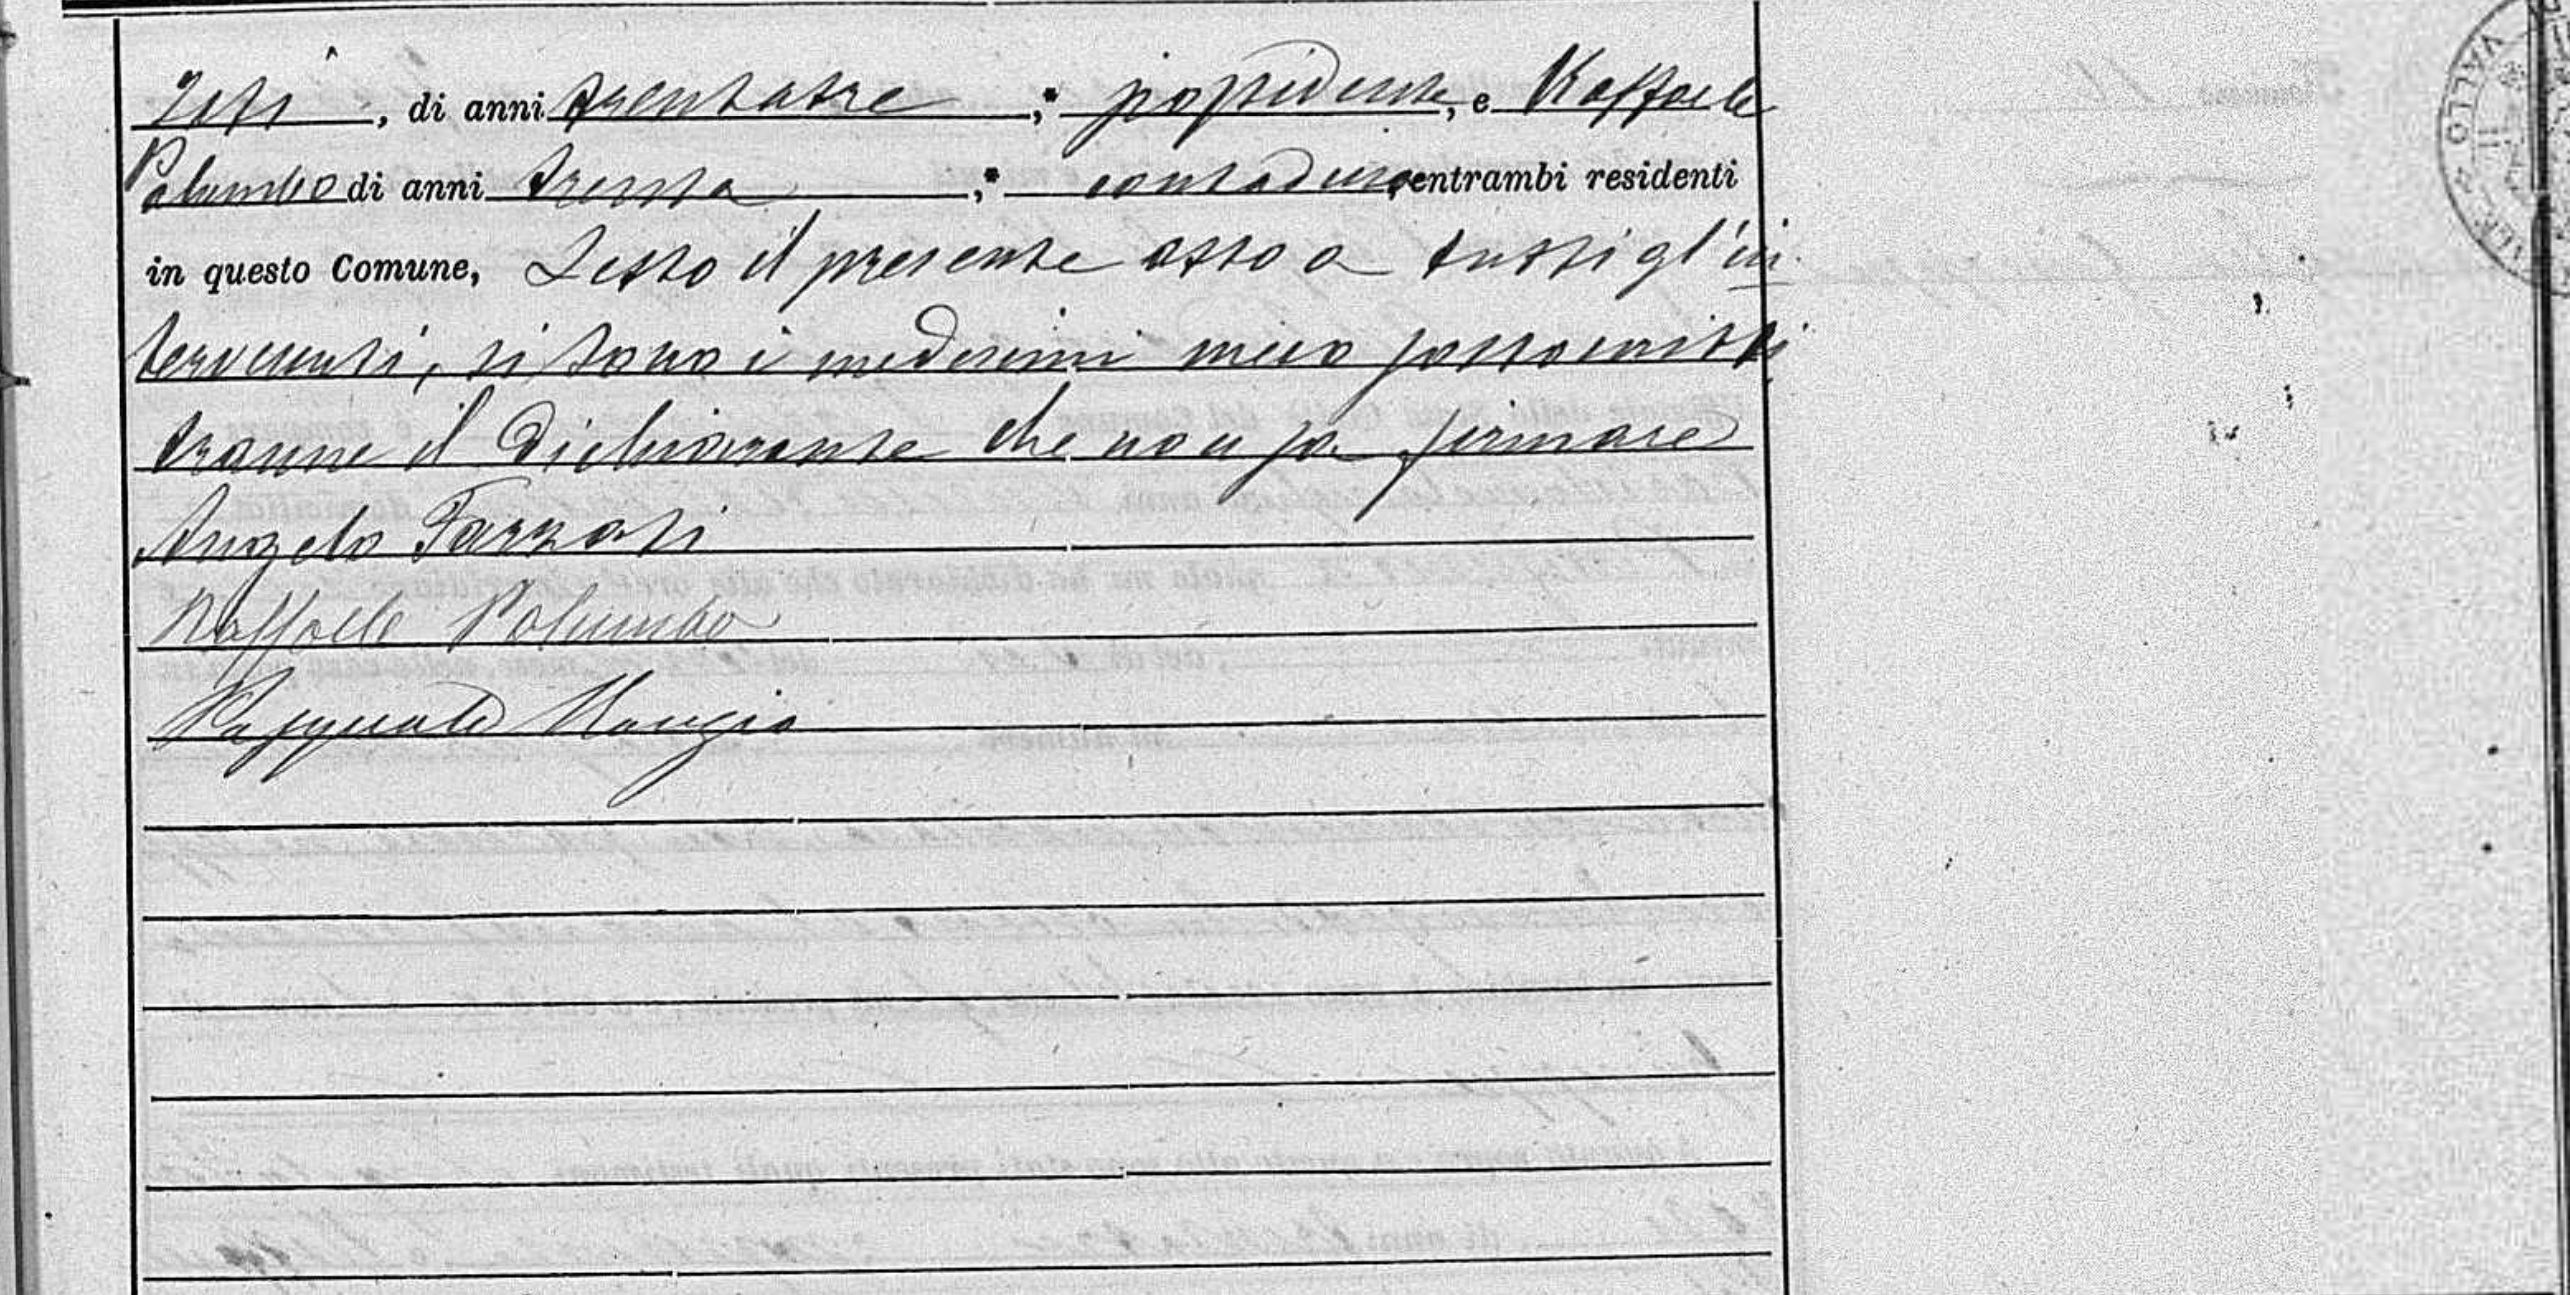 zati, di anni trentatre, possidente, e Raffaele
Palumbo di anni trenta, contadino, entrambi residenti
in questo Comune, Letto il presente atto a tutti gl'in-
tervenuti, si sono i medesimi meco sottoscritti
tranne il dichiarante che non sa firmare
Angelo Tarzati
Raffaele Palumbo
Pasquale
VALLO